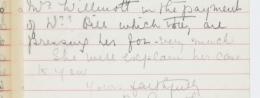 Mrs Willmott in the payment
of Wm's Bill which they are
pressing her for very much
She will explain her case
to you
Yours faithfully